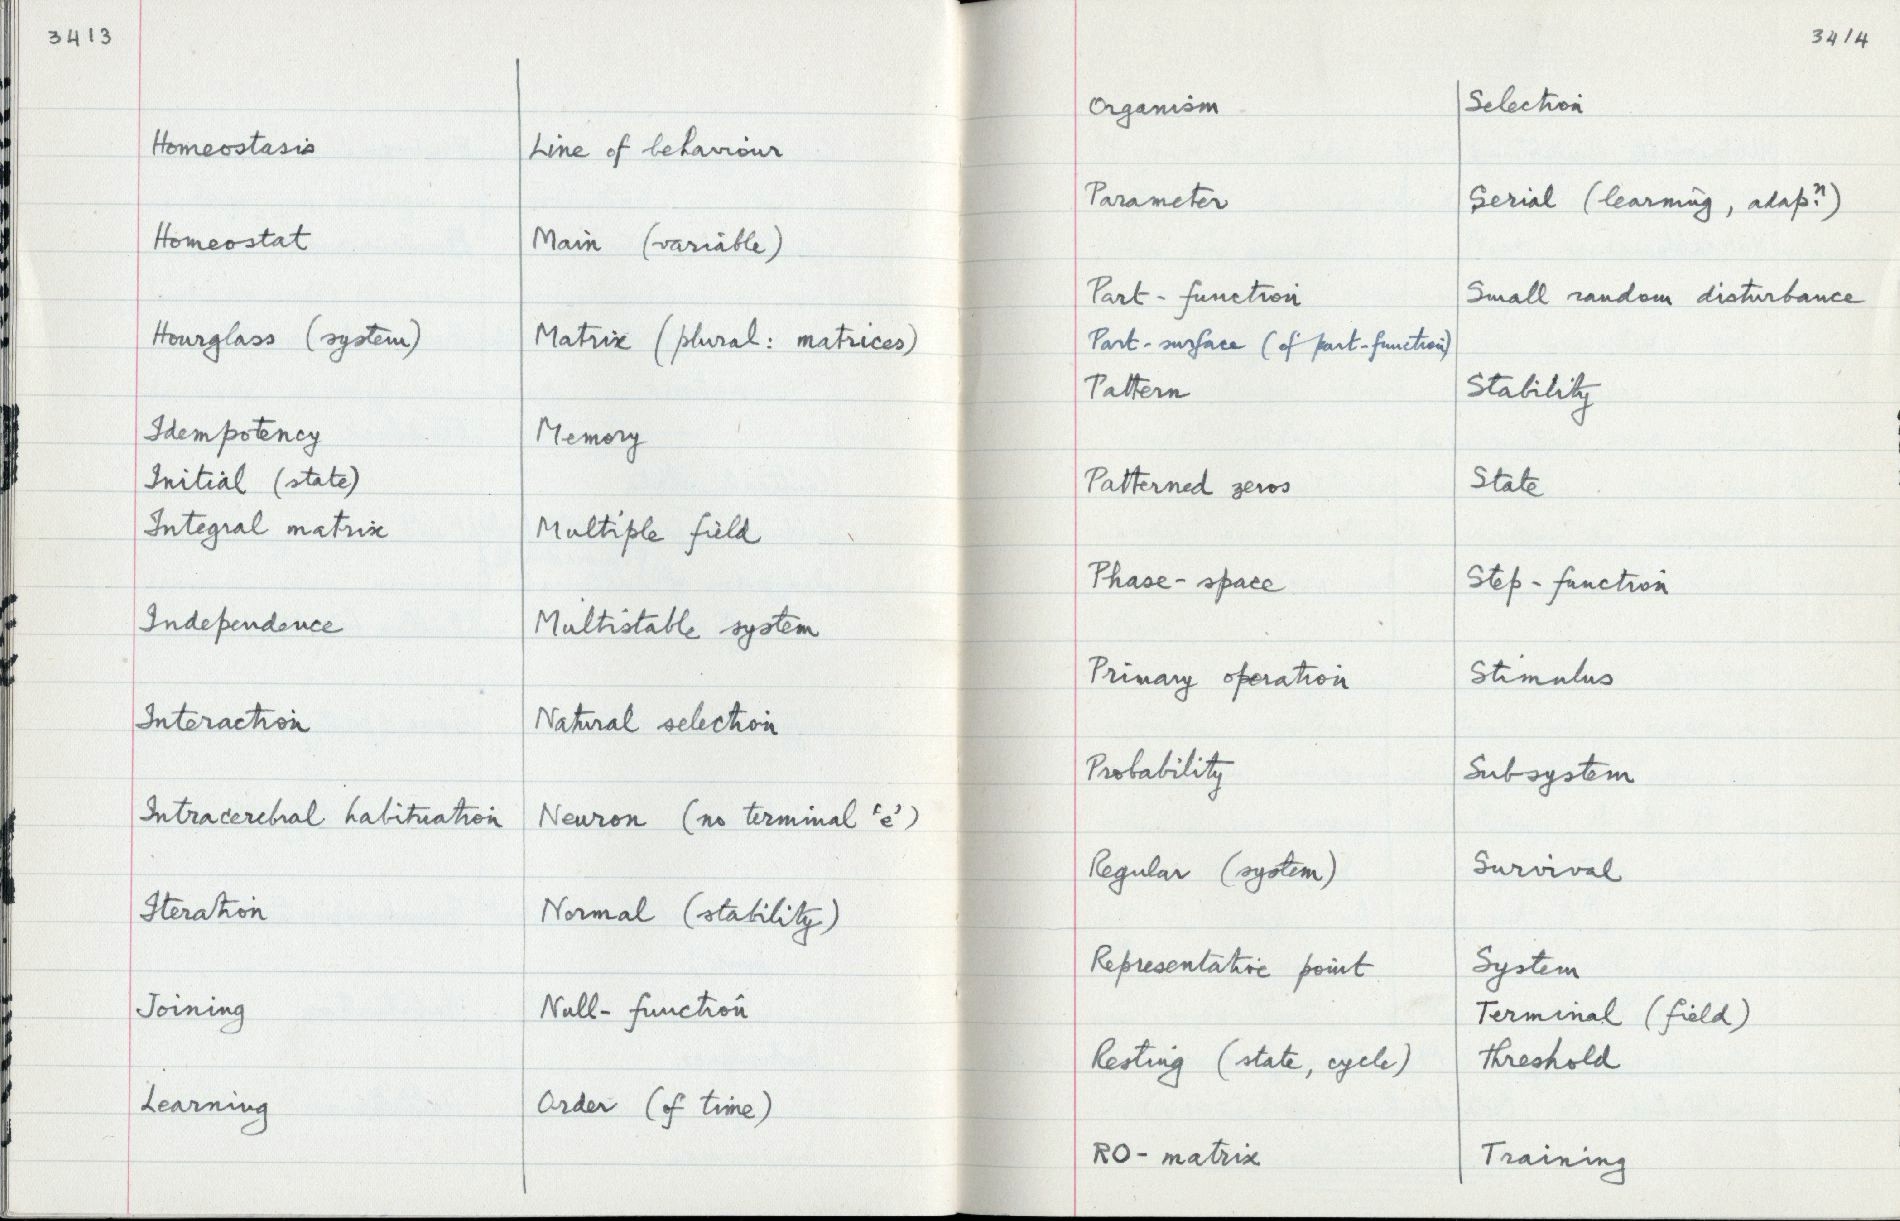 3413
Homeostasis
Homeostat
Hourglass (system)
Idempotency
Initial (state)
Integral matrix
Independence
Interaction
Intracerebral habituation
Iteration
Joining
Learning
Line of behaviour
Main (variable)
Matrix (plural: matrices)
Memory
Multiple field
Multistable system
Natural selection
Neuron (no terminal 'e')
Normal (stability)
Null-function
Order (of time)
3414
Organism
Parameter
Part-function
Part-surface (of part-function)
Pattern
Patterned zeros
Phase-space
Primary operation
Probability
Regular (system)
Representative point
Resting (state, cycle)
RO-matrix
Selection
Serial (learning, adap.ⁿ)
Small random disturbance
Stability
State
Step-function
Stimulus
Subsystem
Survival
System
Terminal (field)
Threshold
Training